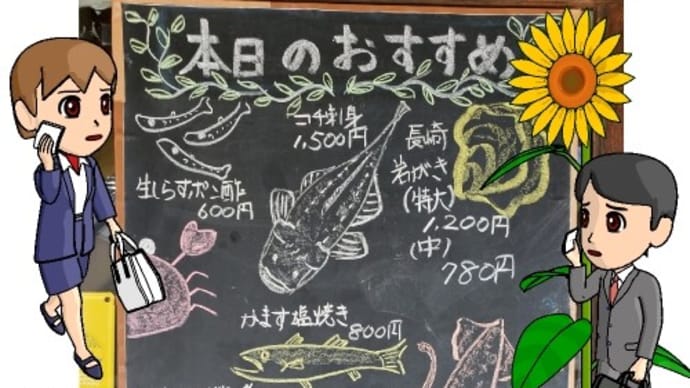 本日のおすすめ
コチ刺身
1,500円
生しらすポン酢
600円
長崎
岩がき
(特大)
1,200円
(中)
780円
かます塩焼き
800円